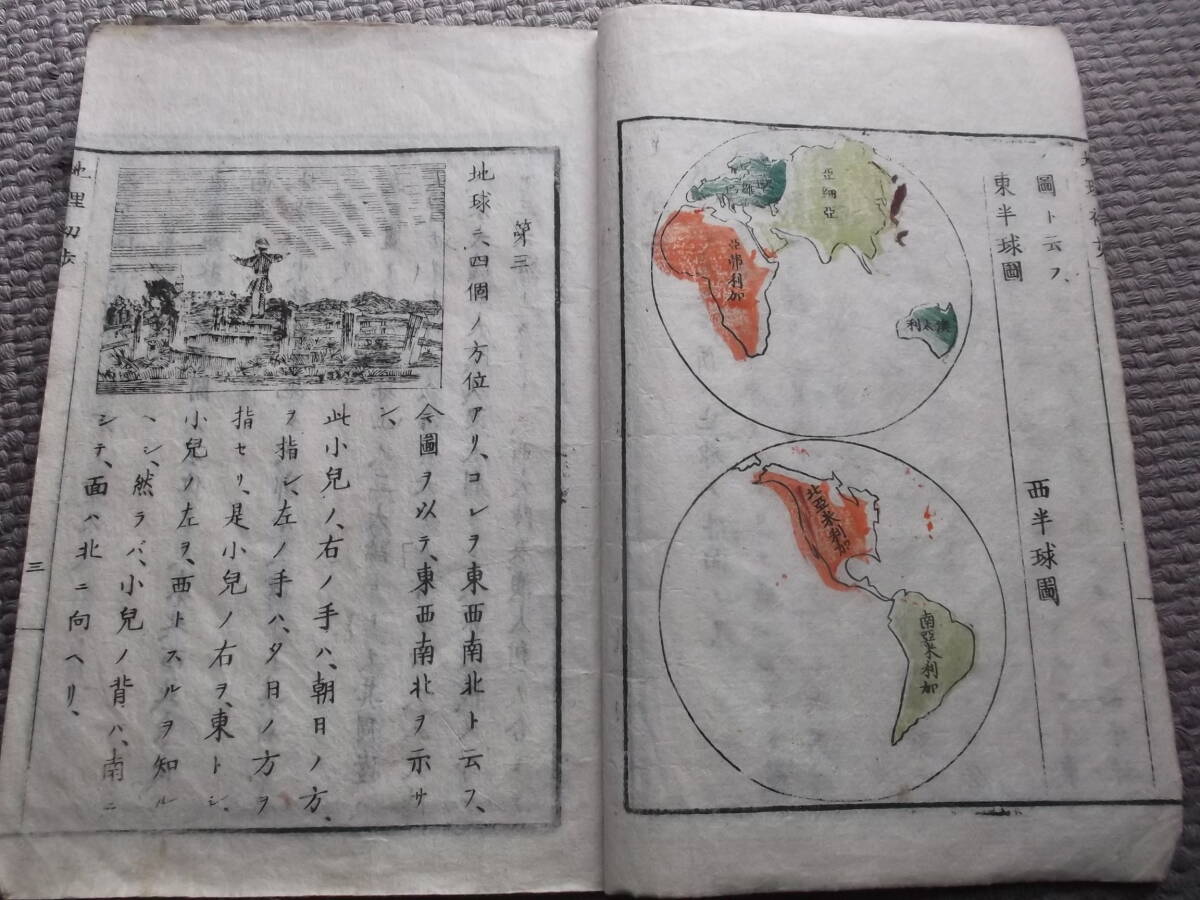 圖ト云フ、
東半球圖
西半球圖
亞細亞
歐羅巴
亞弗利加
澳太利
北亞米利加
南亞米利加
第三
地球ニ四個ノ方位アリ、コレヲ東西南北ト云フ、
今圖ヲ以テ、東西南北ヲ示サ
ン、
此小兒ノ、右ノ手ハ、朝日ノ方、
ヲ指シ、左ノ手ハ、夕日ノ方ヲ
指セリ、是小兒ノ右ヲ、東トシ、
小兒ノ左ヲ、西トスルヲ知ル
ヘシ、然ラバ、小兒ノ背ハ、南ニ
シテ、面ハ北ニ向ヘリ、
地理初歩
三